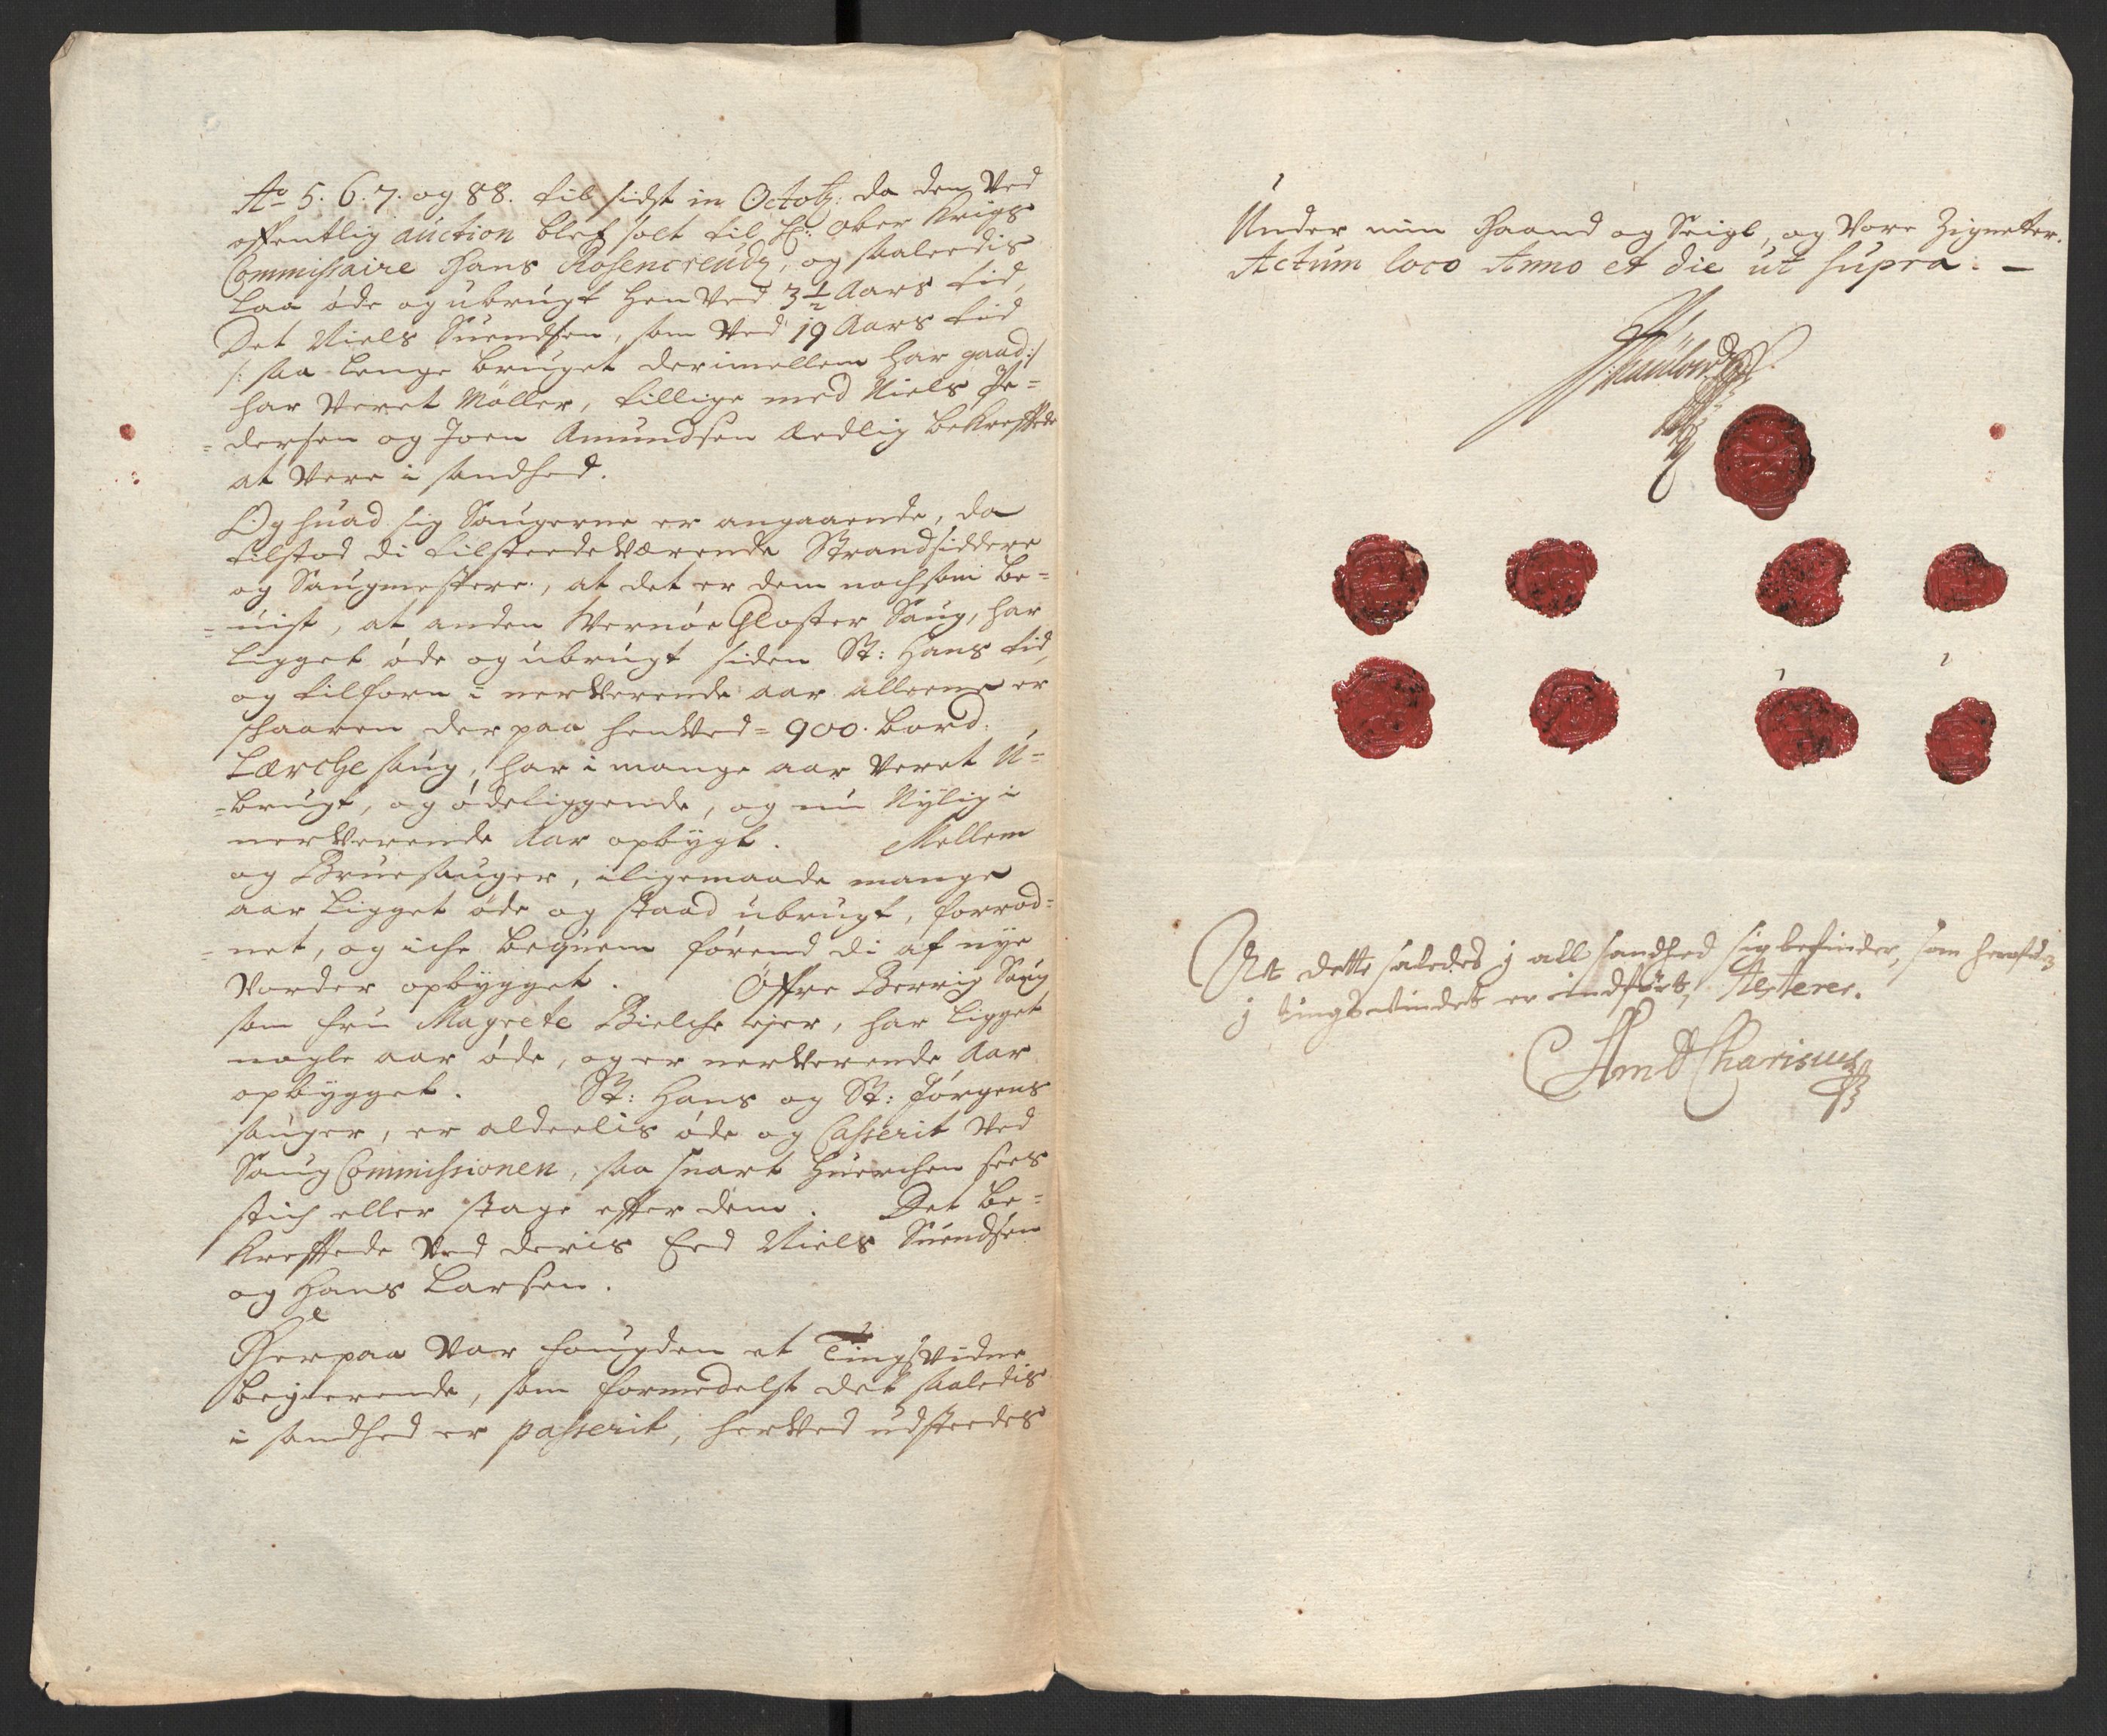 Ao 5. 6. 7. og 88. til sidst in Octobr: da den Ved
offentlig auction blef solt til Hr: ober Krigs
Commissaire Hans Rosencreudtz, og saaleedis
Laa øde og ubrugt hen Ved 3 1/2 Aars tid,
Det Niels Suendsen, som Ved 19 Aars tid
/: saa lenge bruget derimellem har gaaed :/
har Veret Møller, tillige med Niels Pe=
=dersen og Joen Amundsen Aedlig bekreffted
at Vere i sandhed.
Og huad sig Saugerne er angaaende, da
tilstod di tilsteedeværende Strandsiddere
og Saugmestere, at det er dem nochsom be=
=uist, at anden Wernøe Closter Saug, har
Ligget øde og ubrugt siden St: Hans tid,
og tilforn i nerVerende aar alleene er
schaaren der paa henved= 900. bord.
Lærche saug, har i mange aar Veret U=
=brugt, og ødeliggende, og nu Nylig i
nerVerende Aar opbygt. Mellem
og Bruesauger, iligemaade mange
aar Ligget øde og staaed ubrugt, forrod=
=net, og iche beqvem førend di af nye
Vorder opbygget. Øffre Berrig Saug
som fru Magrete Bielche ejer, har Ligget
nogle aar øde, og er nerVerende Aar
opbygget. St: Hans og St: Jørgens
sauger, er aldeelis øde og Casserit Ved
Saug Commissionen, saa snart huerchen sees
stich eller stage effter dem. Det be=
kreffted Ved deris Eed Niels Suendsen
og Hans Larsen.
Herpaa Var fougden et Tingsvidne
begierende, som formedelst det saaledis
i sandhed er passerit, herVed udsteedes
Under min Haand og Seigl, og Vore Zigneter.
Actum loco Anno et die ut supra. –
At dette saledes j all sandhed sig befinder, som herofven
j tingsvindet er indført, Testerer.
Am d Charisius